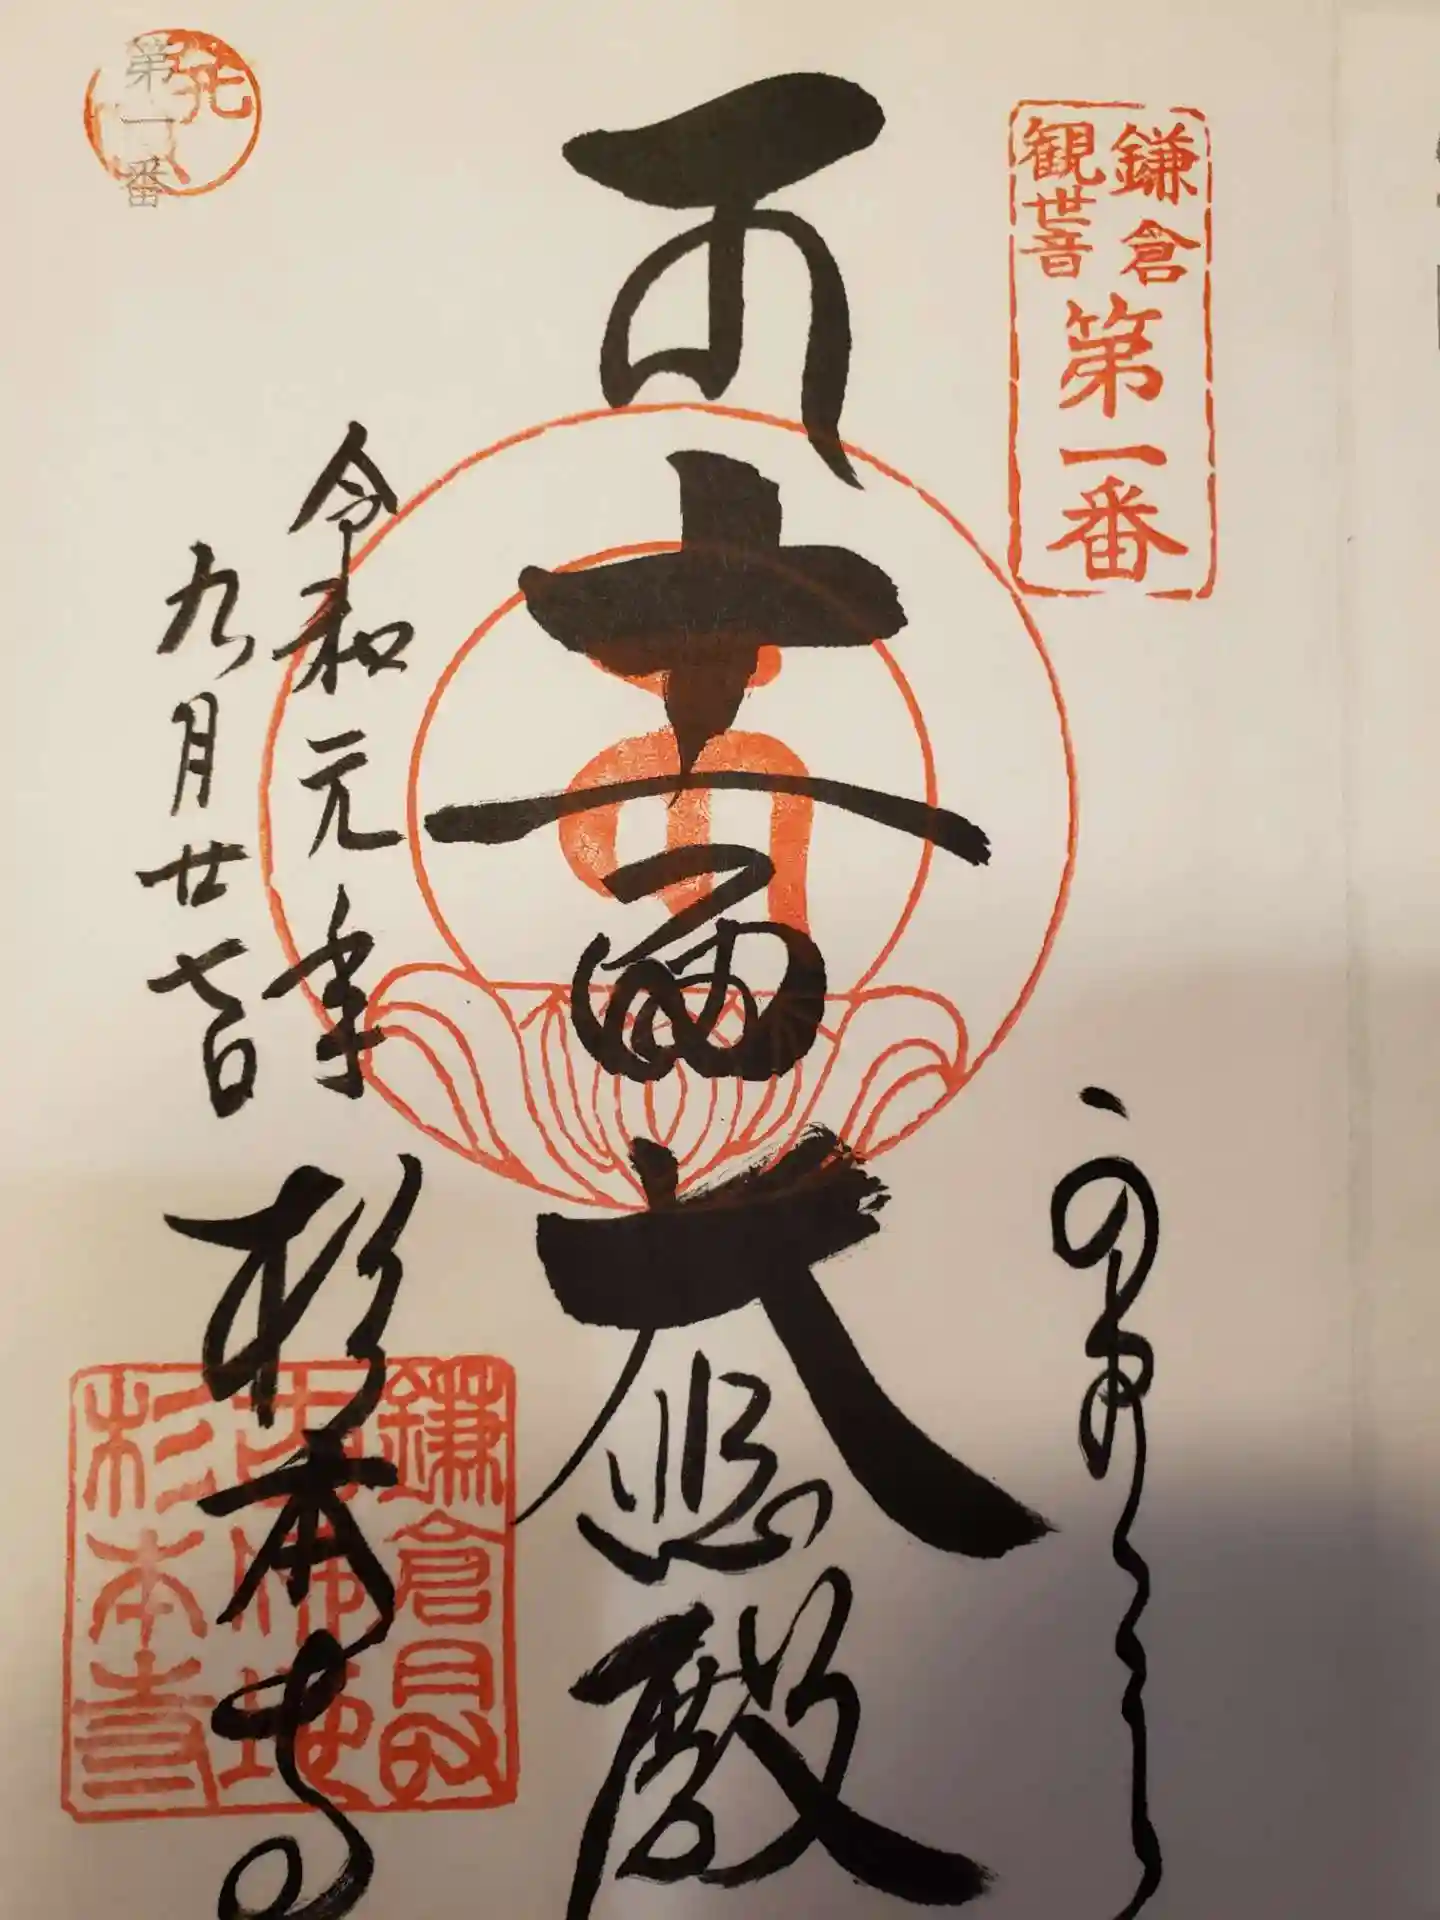 鎌倉
観世音
第一番
奉拝
十一面大悲殿
令和元年
九月廿七日
杉本寺
鎌倉最
古佛地
杉本寺
第一番